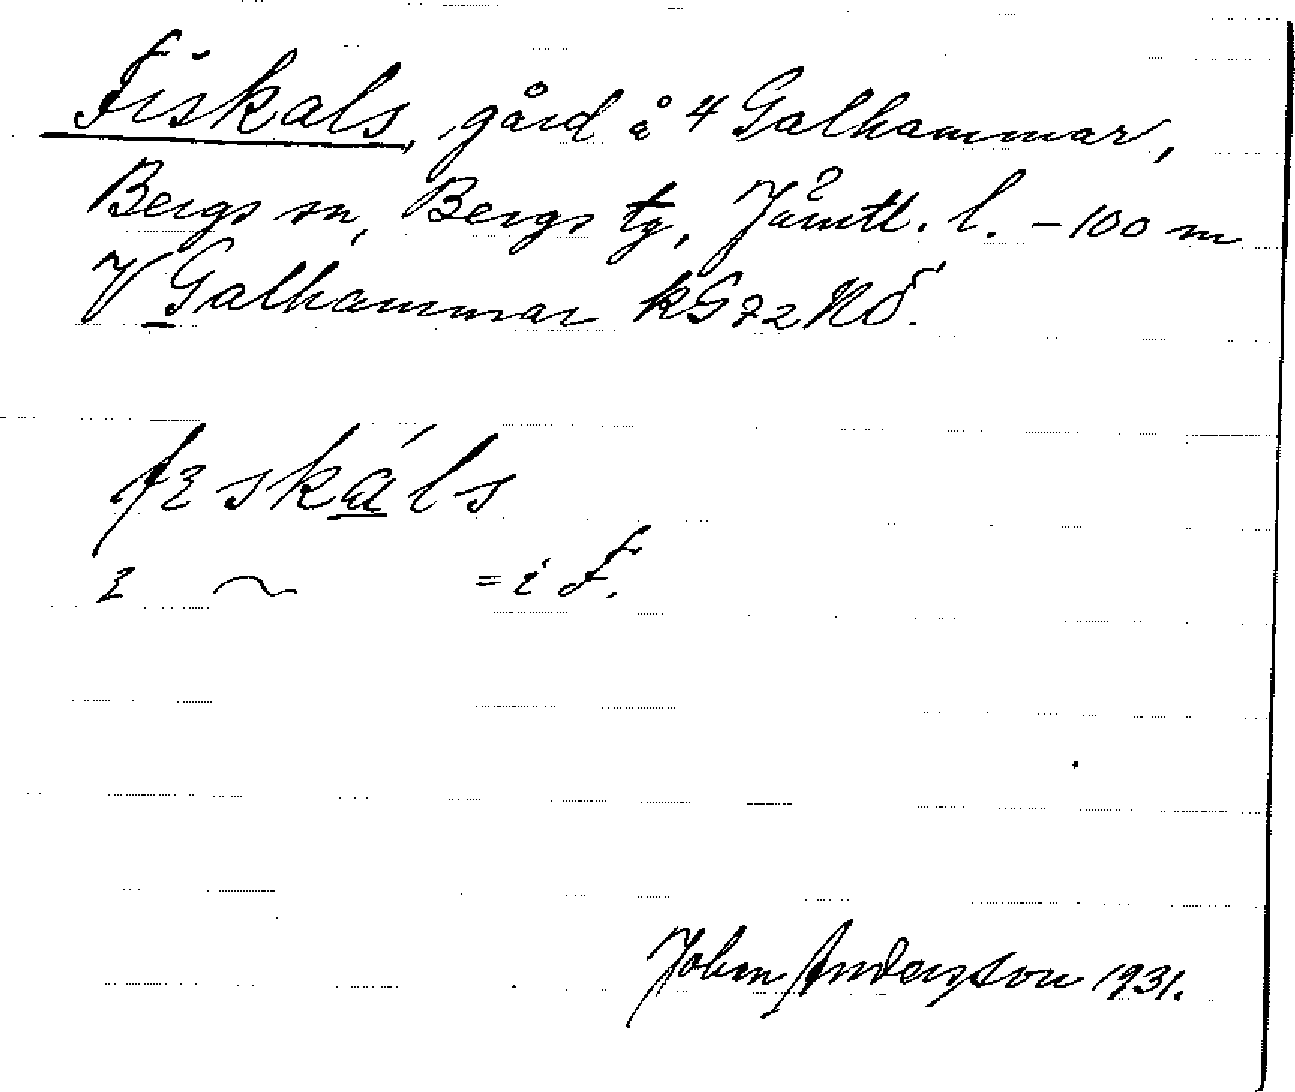 Fiskals, gård å 4 Galhammar,
Bergs sn, Bergs tg, Jämtl. l. – 100 m
V Galhammar kG 72 NÖ.
fɪskáls
ɪ ~ = i F.
John Anderson 1931.